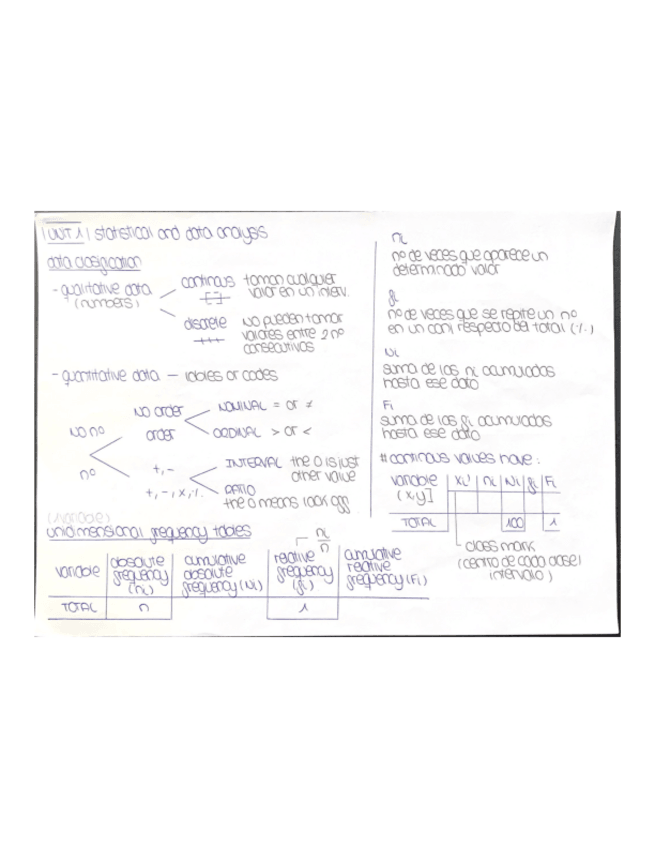 UNIT 1 | statistical and data analysis
data clasification
- qualitative data
(numbers)
continous
toman cualquier
valor en un interv.
discrete
NO pueden tomar
valores entre 2 nº
consecutivos
- quantitative data — lables or codes
NO nº
NO order
NOMINAL = or ≠
order
ORDINAL > or <
nº
+, -
INTERVAL the 0 is just
other value
+, -, x, ./.
RATIO
the 0 means lack off
(variable)
unidimensional frequency tables
ni
n
variable
absolute
frequency
(ni)
cumulative
absolute
frequency (Ni)
relative
frequency
(fi)
cumulative
relative
frequency (Fi)
TOTAL
n
1
ni
nº de veces que aparece un
determinado valor
fi
nº de veces que se repite un nº
en un conj respecto del total (./.)
Ni
suma de las ni acumuladas
hasta ese dato
Fi
suma de las fi acumuladas
hasta ese dato
# continous values have:
variable
(x,y]
xi'
ni
Ni
fi
Fi
TOTAL
100
1
class mark
(centro de cada clase |
intervalo)